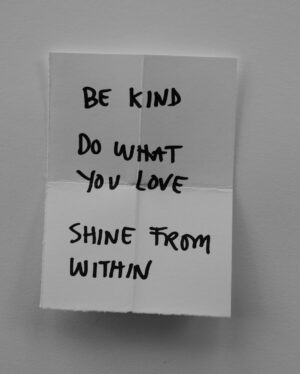 BE KIND
DO WHAT
YOU LOVE
SHINE FROM
WITHIN